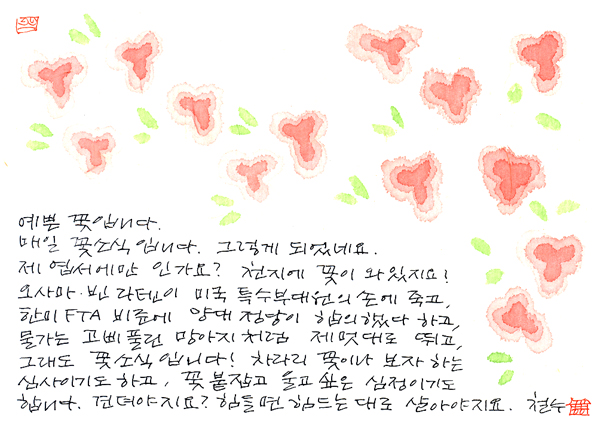 예쁜 꽃입니다.
매일 꽃소식입니다. 그렇게 되었네요.
제 엽서에만 인가요? 천지에 꽃이 와있지요!
오사마·빈 라덴이 미국 특수부대원의 손에 죽고,
한미FTA 비준에 양대 정당이 합의했다 하고,
물가는 고삐 풀린 망아지처럼 제멋대로 뛰고,
그래도 꽃소식입니다! 차라리 꽃이나 보자 하는
심사이기도 하고, 꽃 붙잡고 울고 싶은 심정이기도
합니다. 견뎌야지요? 힘들면 힘드는 대로 살아야지요. 철수